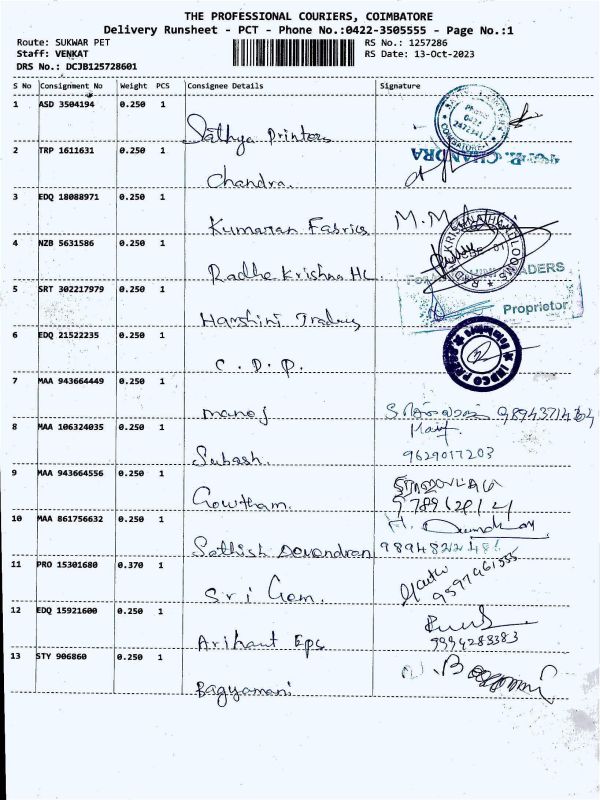 THE PROFESSIONAL COURIERS, COIMBATORE
Delivery Runsheet - PCT - Phone No.:0422-3505555 - Page No.:1
Route: SUKWAR PET
RS No.: 1257286
Staff: VENKAT
RS Date: 13-Oct-2023
DRS No.: DCJB125728601
S No Consignment No Weight PCS Consignee Details Signature
1 ASD 3504194 0.250 1
Sathya Printers
2 TRP 1611631 0.250 1
CHANDRA
Chandra.
3 EDQ 18088971 0.250 1
Kumaran Fabrics
4 NZB 5631586 0.250 1
Radhe Krishna HL.
5 SRT 302217979 0.250 1
Harshini Traders
Proprietor.
6 EDQ 21522235 0.250 1
C. D. P.
7 MAA 943664449 0.250 1
manoj
8 MAA 106324035 0.250 1
Subash.
9629017203
9 MAA 943664556 0.250 1
Gowtham.
10 MAA 861756632 0.250 1
Sathish Devandran
11 PRO 15301680 0.370 1
Sri Gom.
9597961555
12 EDQ 15921600 0.250 1
Arihant Eps
9994283383
13 STY 906860 0.250 1
Bagyamani